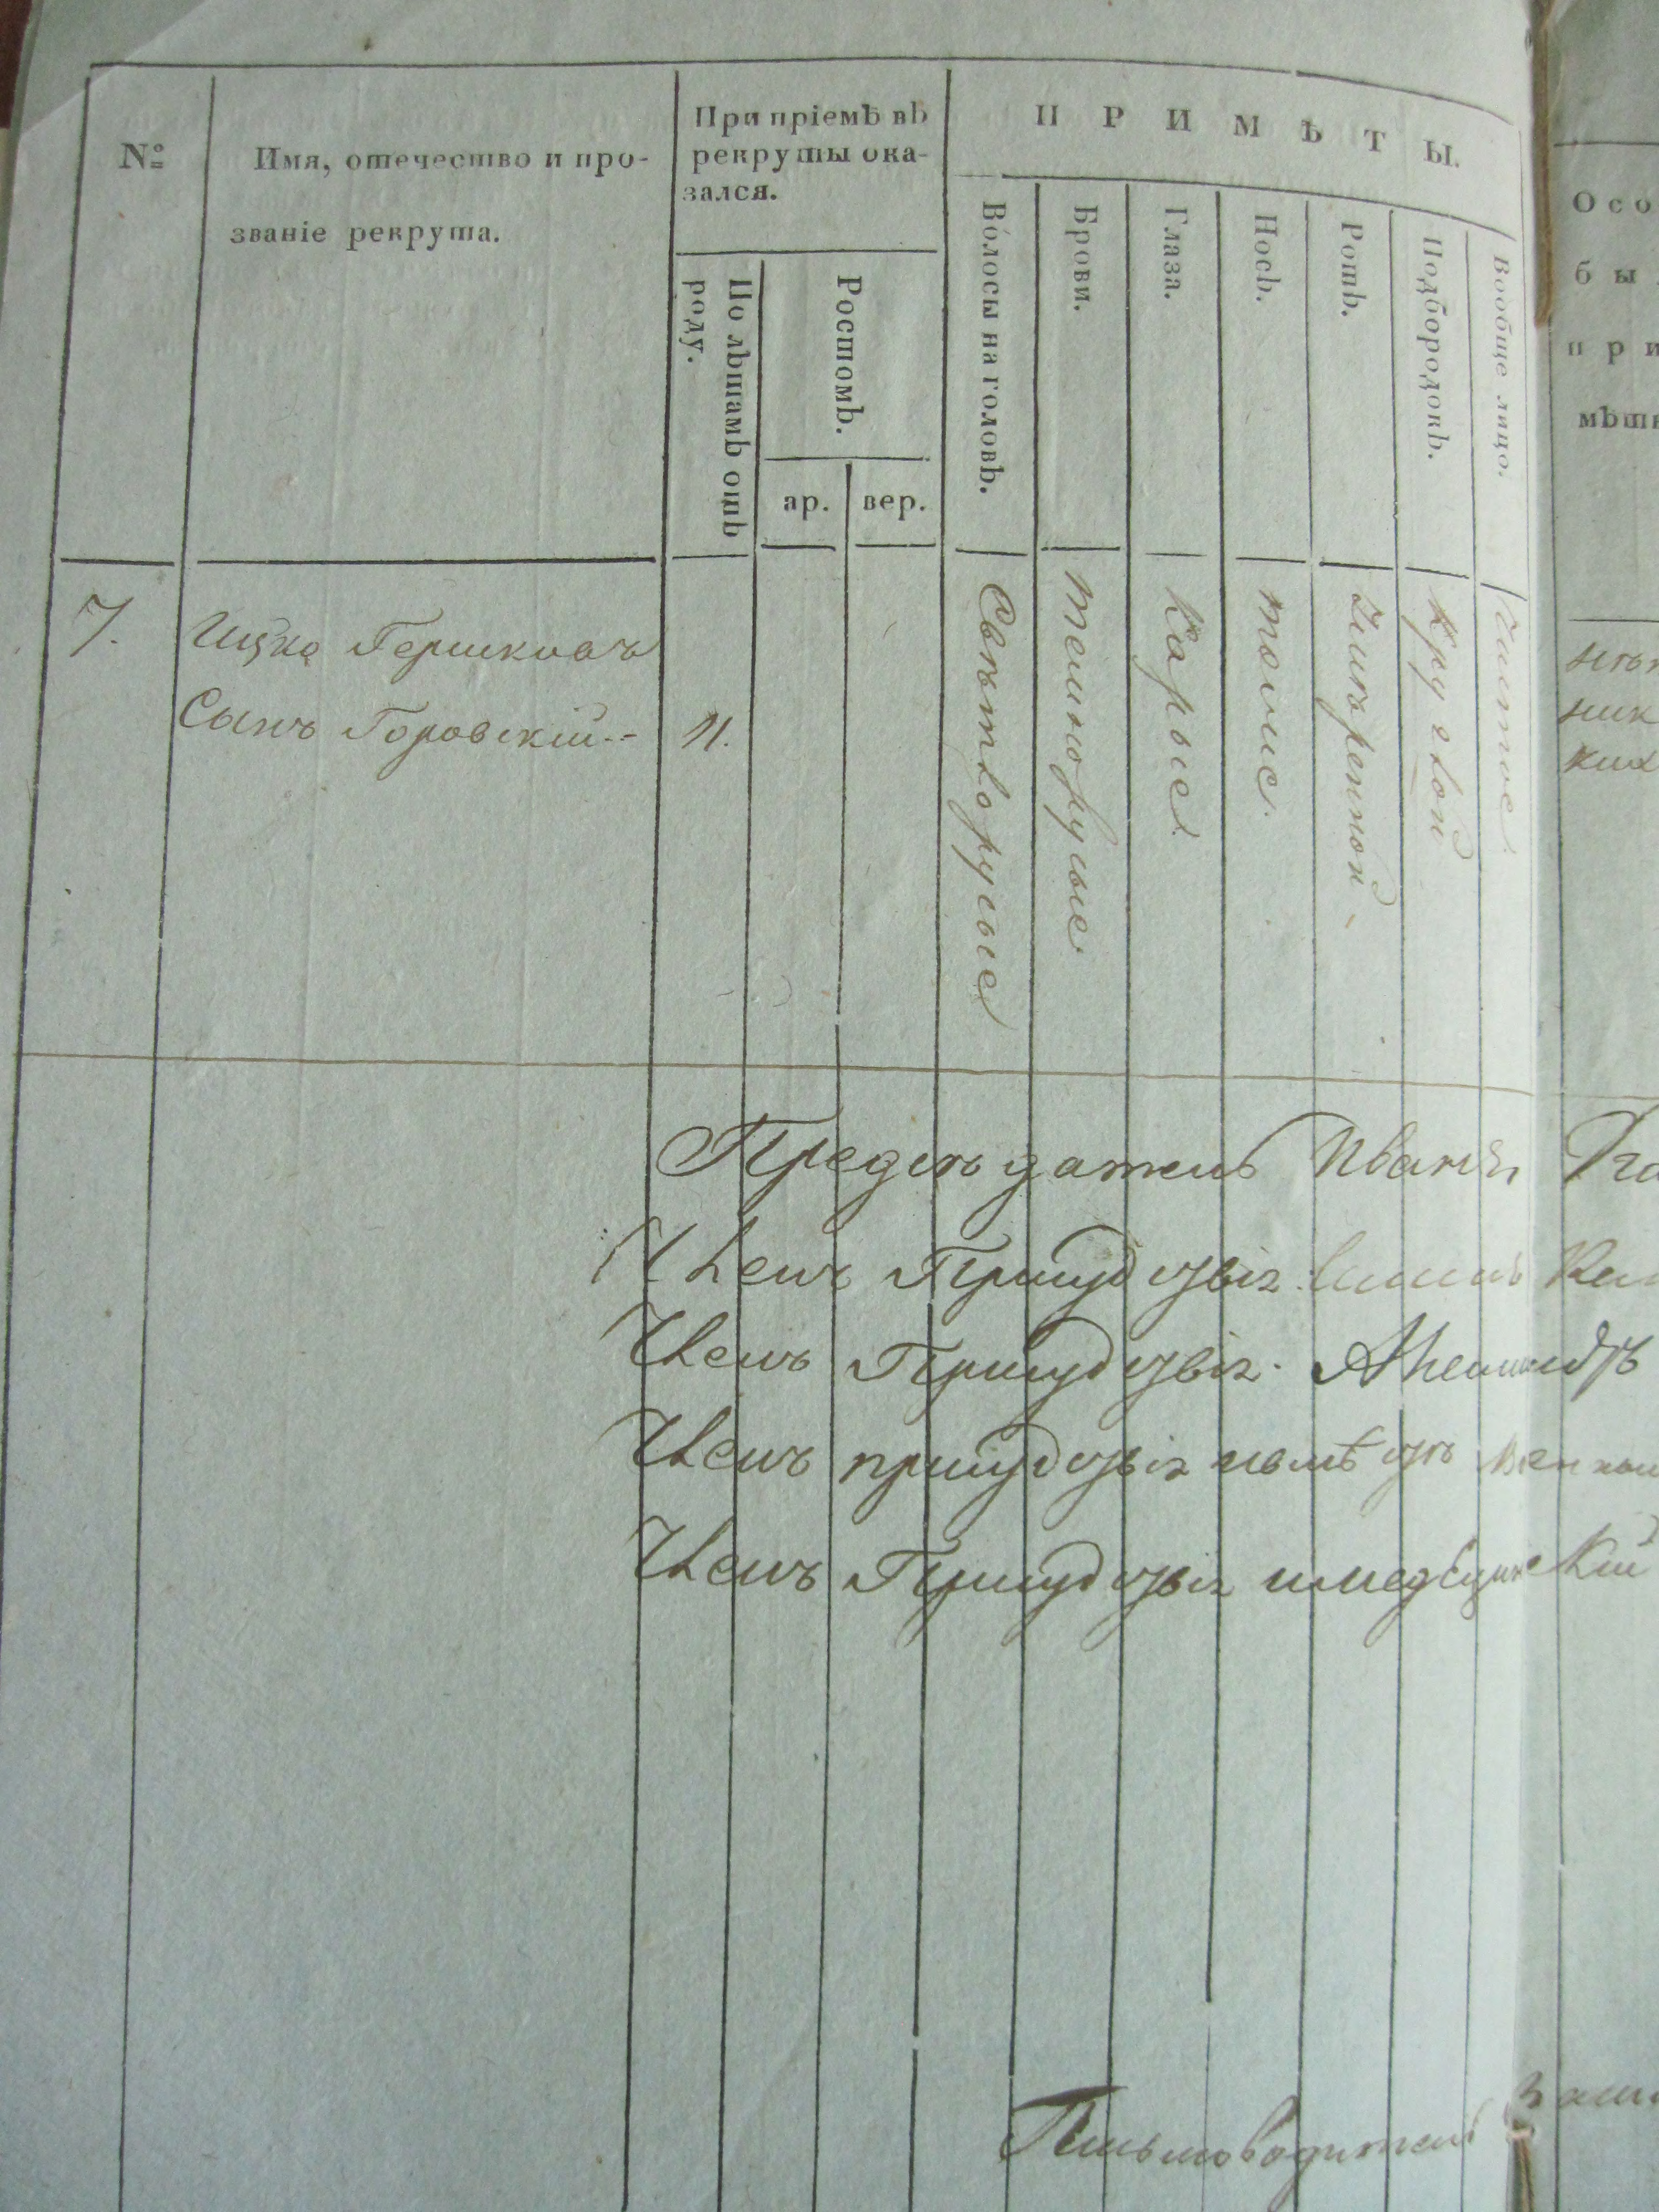 №
Имя, отечество и про-
званіе рекрута.
При пріемѣ въ
рекруты ока-
зался.
По лѣтамъ отъ
роду.
Ростомъ.
ар.
вер.
ПРИМѢТЫ.
Волосы на головѣ.
Брови.
Глаза.
Носъ.
Ротъ.
Подбородокъ.
Вообще лицо.
Осо
бы
при
мѣт
7.
Ицко Гершковъ
Сынъ Горовскій--
11.
Свѣтлорусые
темнорусые
Карые
умѣренной
круглой
чистое
ких
Предсѣдатель Иванъ
Членъ Присудствія
Членъ Присудствія
Членъ присудствія
Членъ Присудствія
Письмоводитель